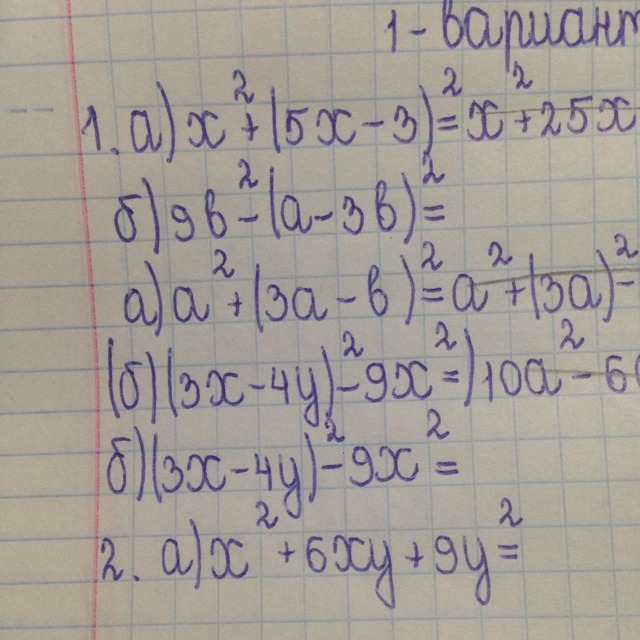 1-вариант
1. а) x² + (5x - 3)² = x² + 25x
б) 9в² - (а - 3в)² =
а) а² + (3а - в)² = а² + (3а)² -
(б) (3x - 4y)² - 9x² =) 10а² - 6
б) (3x - 4y)² - 9x² =
2. а) x² + 6xy + 9y² =